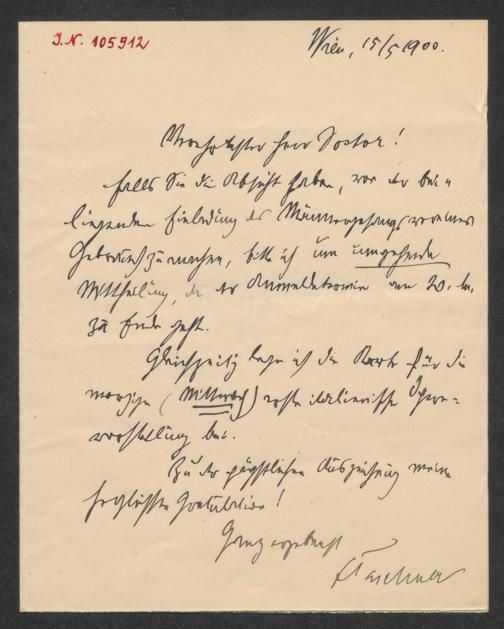 J.N. 105912
Wien, 15/5 1900.
Verehrtester Herr Doctor!
Falls Sie die Absicht haben, von der bei-
liegenden Einladung des Männergesangvereines
Gebrauch zu machen, bitte ich um umgehende
Mittheilung, da der Anmeldetermin am 20. M.
zu Ende geht.
Gleichzeitig lege ich die Karte für die
morgige (Mittwoch) erste italienische Opern-
vorstellung bei.
Zu der päpstlichen Auszeichnung meine
herzlichste Gratulation!
Ganz ergebenst